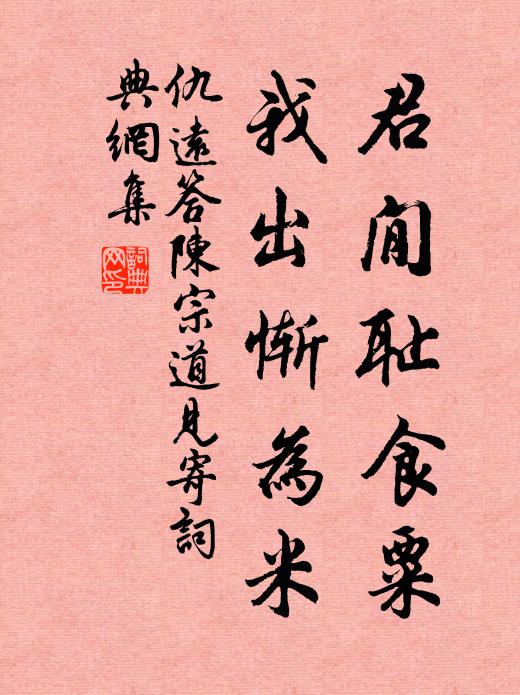 君閒耻食粟
我出慚為米
仇遠答陳宗道見寄詞
典網集
詞典
网印